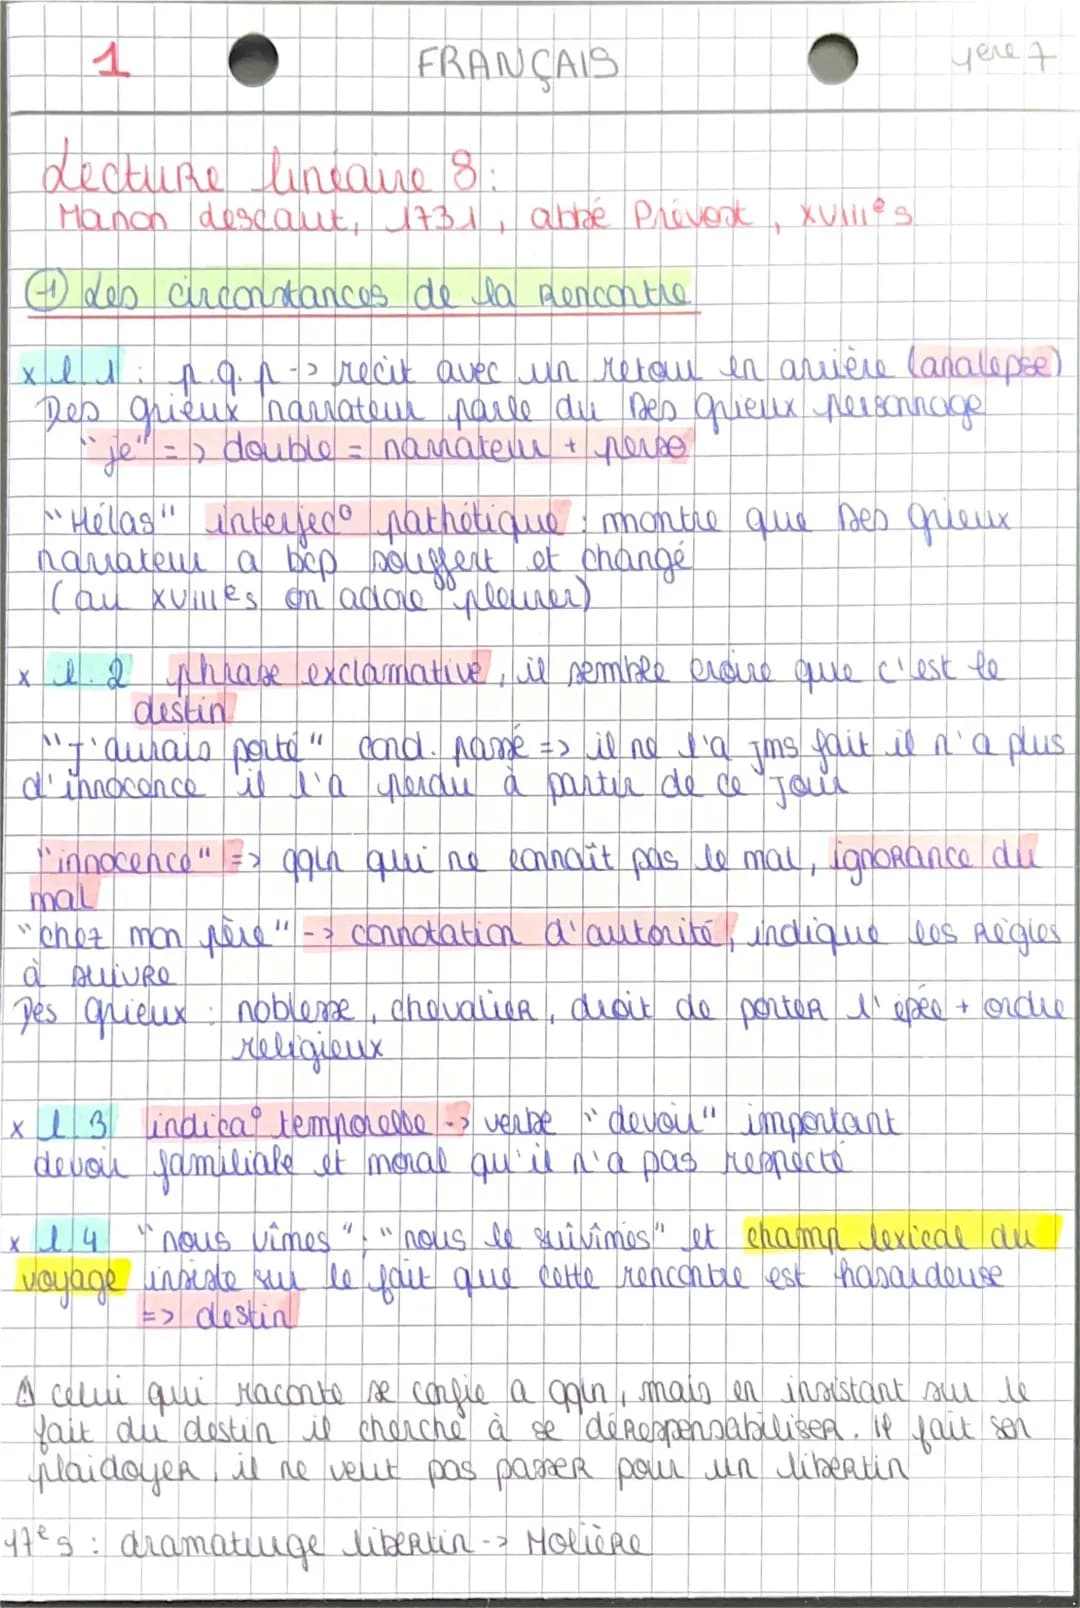 1 FRANÇAIS 1ère 7
Lecture linéaire 8:
Manon Lescaut, 1731, abbé Prévost, XVIIIe s
① Les circonstances de la rencontre
x l 1 : p.q.p -> récit avec un retour en arrière (analepse)
Des Grieux narrateur parle du Des Grieux personnage
"je" => double = narrateur + perso
"Hélas" interjec° pathétique : montre que Des Grieux
narrateur a bcp souffert et changé
(au XVIIIes on adore pleurer)
x l. 2 phrase exclamative, il semble croire que c'est le
destin
"J'aurais porté" cond. passé => il ne l'a jms fait il n'a plus
d'innocence il l'a perdu à partir de ce jour
"innocence" => qqln qui ne connaît pas le mal, ignorance du
mal
"chez mon père" -> connotation d'autorité, indique les règles
à suivre
Des Grieux : noblesse, chevalier, droit de porter l'épée + ordre
religieux
x l 3 indica° temporelle -> verbe "devoir" important
devoir familiale et moral qu'il n'a pas respecté
x l 4 "nous vîmes", "nous le suivîmes" et champ lexical du
voyage insiste sur le fait que cette rencontre est hasardeuse
=> destin
⚠ celui qui raconte se confie a qqln, mais en insistant sur le
fait du destin il cherche à se déresponsabiliser. Il fait son
plaidoyer, il ne veut pas passer pour un libertin
17e s : dramaturge libertin -> Molière